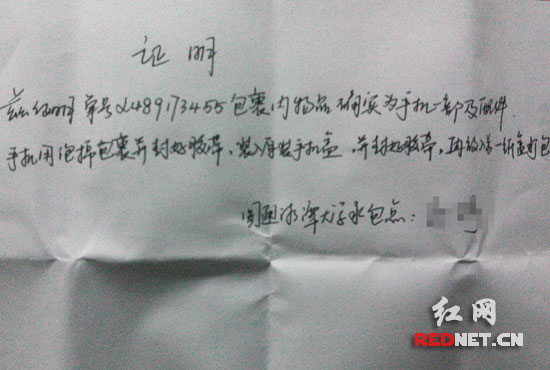 证明
兹证明单号2489173455包裹内物品确实为手机一部及配件.
手机用泡棉包裹并封好胶带,装入原装手机盒,并封好胶带,再放入一纸盒打包
圆通水洋大学承包点:
红网
REDNET.CN